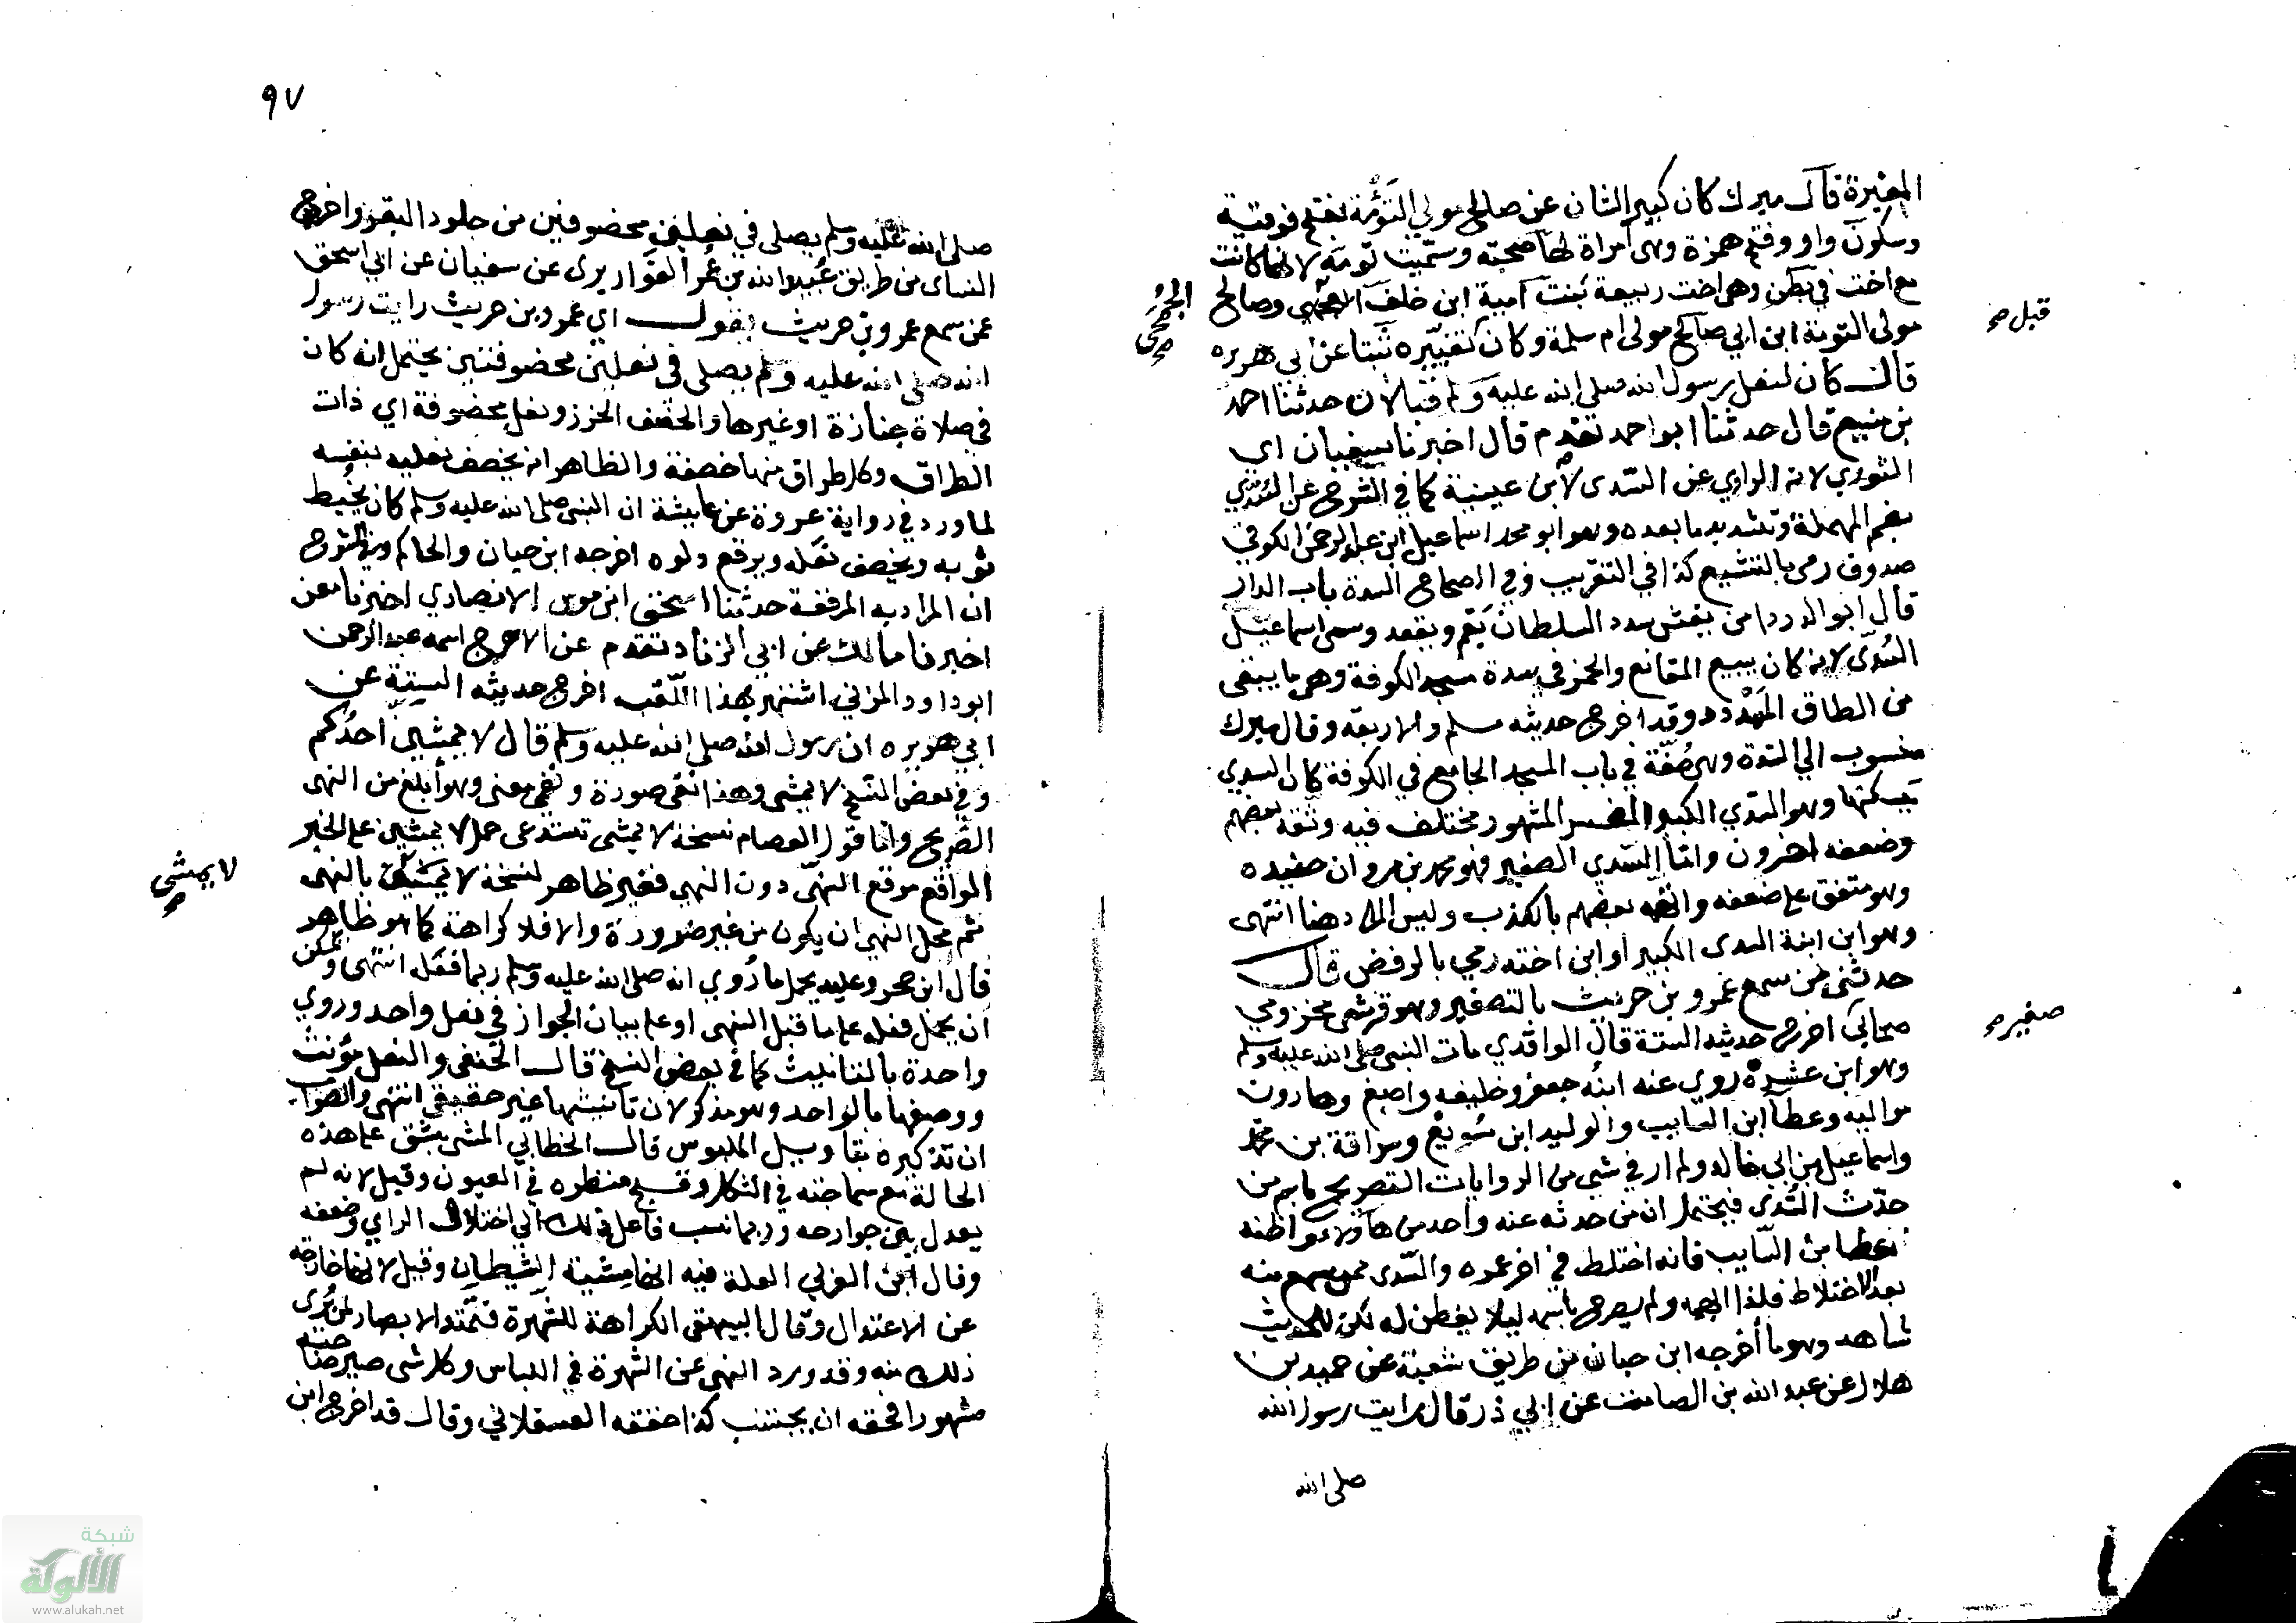 المغيرة قال ميرك كان كبير الشان عن صالح مولي التوْمة بفتح فوقية
وسكون واو وفتح همزة وهى امراة لها صحبة وسميت تومة لانها كانت
مع اخت في بطن وهى اخت ربيعة بنت امية ابن خلف الجمحى وصالح
مولى التومة ابن ابي صالح مولى ام سلمة وكان تغيره ثبتا عن ابى هريره
قال كان لنعل رسول الله صلى الله عليه وسلم قبالان حدثنا احمد
بن منيع قال حدثنا ابو احمد تقدم قال اخبرنا سفيان اى
الثوري لانه الراوي عن السدى لا ابن عيينة كما في الشرح عن السدي
بضم المهملة وتشديد ما بعده وهو ابو محمد اسماعيل ابن عبد الرحمن الكوفي
صدوق رمى بالتشيع كذا في التقريب وفي الصحاح السدة باب الدار
قال ابو الدرداء من يغش سدد السلطان يقم ويقعد وسمى اسماعيل
السُدّى لانه كان يبيع المقانع والخمر في سدة مسجد الكوفة وهى ما يبقى
من الطاق المسدود وقد اخرج حديثه مسلم والاربعة وقال ميرك
منسوب الي السدة وهى صُفّة في باب المسجد الجامع في الكوفة كان السدي
يسكنها وهو السدي الكبير المفسر المشهور مختلف فيه وثقه بعضهم
وضعفه اخرون واما السدي الصغير فهو محمد بن مروان حفيده
وهو متفق على ضعفه واتهمه بعضهم بالكذب وليس المراد هنا انتهى
وهو ابن ابنة السدى الكبير او ابن اخته رمي بالرفض قال
حدثنى من سمع عمرو بن حريث بالتصغير وهو قرشى مخزومي
صحابى اخرج حديثه الستة قال الواقدي مات النبى صلى الله عليه وسلم
وهو ابن عشرة روي عنه ابنه جعفر وخليفه واصبغ وهارون
مواليه وعطا ابن السايب والوليد ابن سُويع وسراقة بن محمد
واسماعيل بن ابي خالد ولم ار في شى من الروايات التصريح باسم من
حدّث السُدى فيحتمل ان من حدثه عنه واحد من هاولاء واظنه
عطا بن السّايب فانه اختلط في اخر عمره والسّدى ممن سمع منه
بعد الاختلاط فلذا ابهمه ولم يصرح باسمه ليلا يفطن له لكن للحديث
شاهد وهو ما أخرجه ابن حبان من طريق شعبة عن حميد بن
هلال عن عبد الله بن الصامت عن ابي ذر قال رايت رسول الله
صلى الله
الجُمَحى
قبل صح
صغير صح
٩٧
صلى الله عليه وسلم يصلى في نعلين مخصوفين من جلود البقر واخرج
النساى من طريق عُبيد الله بن عُمر القواريرى عن سفيان عن ابي اسحق
عمن سمع عمرو بن حريث يقول اي عمرو بن حريث رايت رسول
الله صلى الله عليه وسلم يصلى في نعلين مخصوفتين يحتمل انه كان
في صلاة جنازة او غيرها والخصف الخرز ونعل مخصوفة اي ذات
الطراق وكل طراق منها خصفة والظاهر انه يخصف نعليه بنفسه
لما ورد في رواية عروة عن عايشة ان النبى صلى الله عليه وسلم كان يخيط
ثوبه ويخصف نعله ويرقع دلوه اخرجه ابن حبان والحاكم وفي الشرح
ان المراد به المرقعة حدثنا اسحق ابن موسى الانصاري اخبرنا معن
اخبرنا مالك عن ابي الزناد تقدم عن الاعرج اسمه عبد الرحمن
ابو داود المزني اشتهر بهذا اللّقب اخرج حديثه الستة عن
ابي هريره ان رسول الله صلى الله عليه وسلم قال لا يمشين احدُكم
وفي بعض النسخ لا يمشى وهذا نفى صورة ونهى معنى وهو أبلغ من النهى
الصّريح واما قول العصام نسخة لا يمشى تستدعى حمل لا يمشين على الخبر
الواقع موقع النهى دون النهي فغير ظاهر لنسخة لا يمشين بالنهى
ثم محل النهي ان يكون من غير ضرورة والا فلا كراهة كما هو ظاهر
قال ابن حجر وعليه يحمل ما رُوي انه صلى الله عليه وسلم ربما فعَل انتهى ويمكن
أن يحمل فعله على ما قبل النهى او على بيان الجواز في نعل واحد وروي
واحدة بالتانيث كما في بعض النسخ قال الحنفى والنعل مؤنث
ووصفها بالواحد وهو مذكر لان تانيثها غير حقيقي انتهى والصواب
ان تذكيره بتاويل الملبوس قال الخطابي المشى يشق على هذه
الحالة مع سماجته في الشكل وقبح منظره في العيون وقيل لانه لم
يعدل بين جوارحه وربما نسب فاعل ذلك الي اختلال الراي وضعفه
وقال ابن العربي العلة فيه انها مِشية الشيطان وقيل لانها خارجة
عن الاعتدال وقال البيهقى الكراهة للشهرة فتمتد الابصار لمن يُرى
ذلك منه وقد ورد النهى عن الشهرة في اللباس وكل شى صير صاحبه
مشهورا فحقه ان يجتنب كذا حققه العسقلاني وقال قد اخرج ابن
لا يمشى
شبكة
الألوكة
www.alukah.net